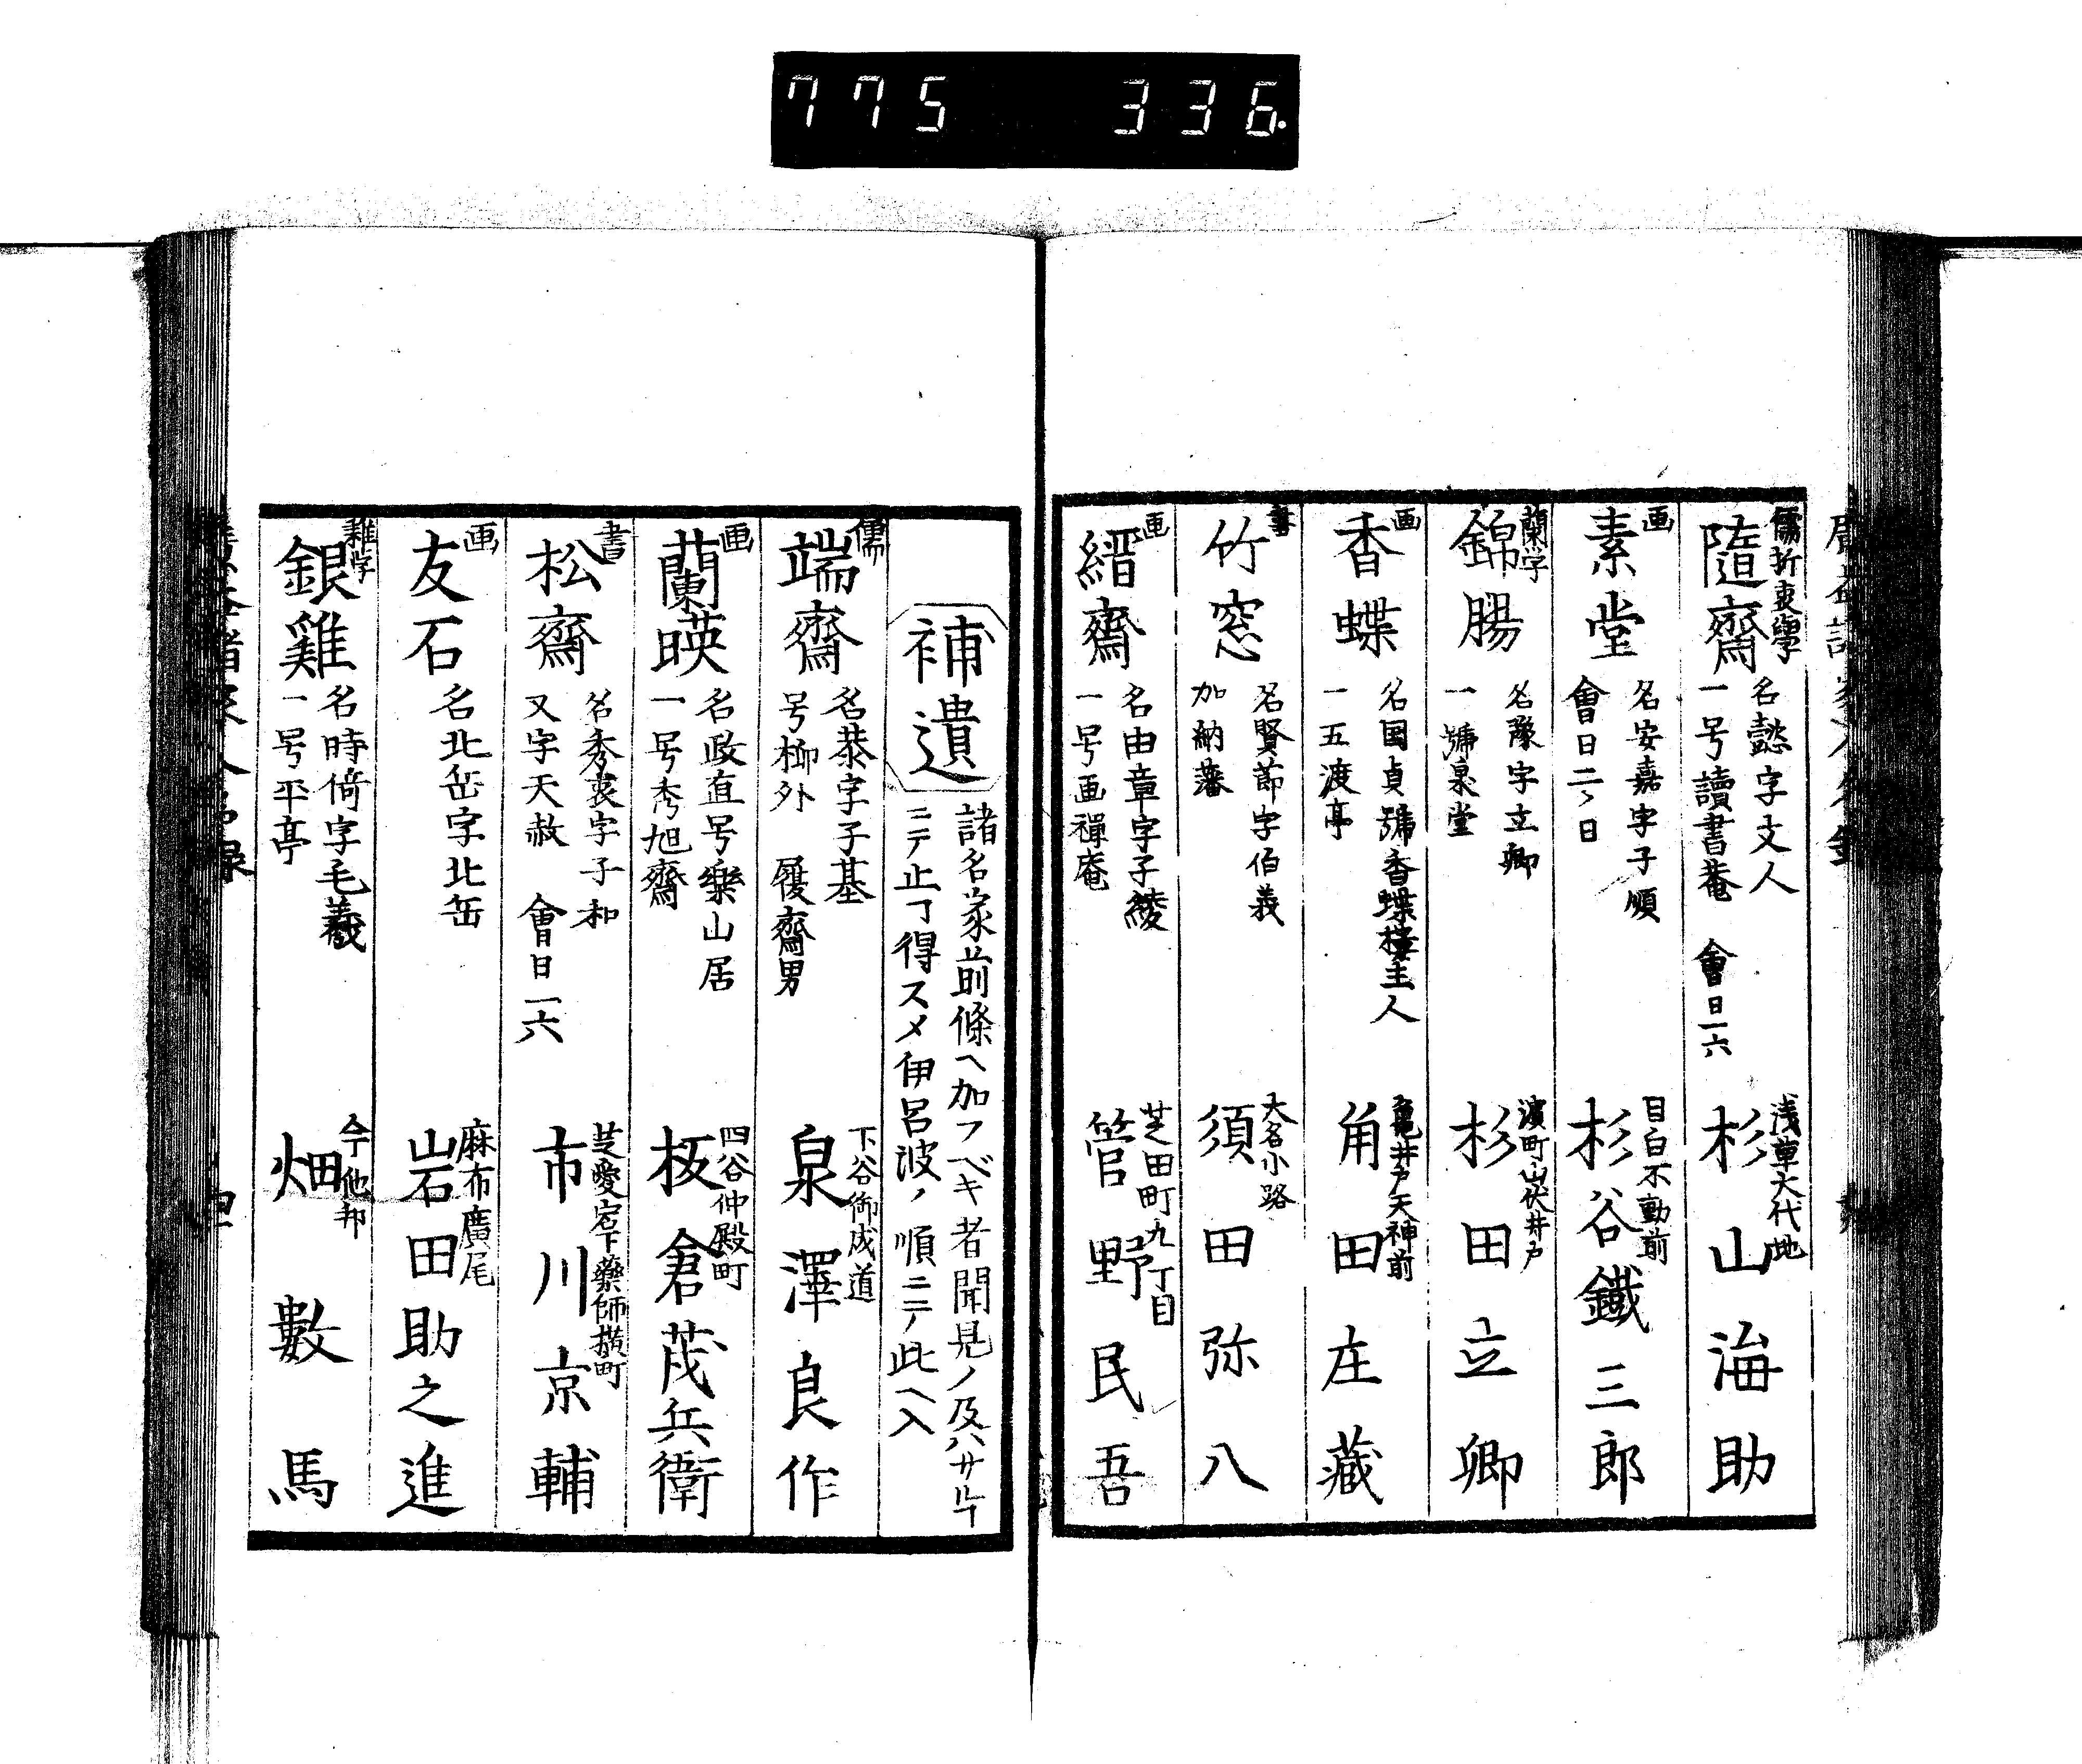 775 336.
儒折衷學
隨齋
名懿字文人
一号讀書菴 會日一六
浅草大代地
杉山海助
画
素堂
名安嘉字子順
會日二ゝ日
目白不動前
杉谷鐵三郎
蘭学
錦腸
名豫字立卿
一號泉堂
濱町山伏井戸
杉田立卿
画
香蝶
名国貞號香蝶樓主人
一五渡亭
亀井戸天神前
角田庄藏
書
竹窓
名賢節字伯義
加納藩
大名小路
須田弥八
画
縉齋
名由章字子綾
一号画禪庵
芝田町九丁目
管野民吾
補遺
諸名家前條ヘ加フベキ者聞見ノ及ハサルヿ
ニテ止ヿ得スメ伊呂波ノ順ニニテ此ヘ入
儒
端齋
名恭字子基
号栁外 履齋男
下谷御成道
泉澤良作
画
蘭暎
名政直号樂山居
一号秀旭齋
四谷仲殿町
板倉茂兵衛
書
松齋
名秀衷字子和
又字天赦 會日一六
芝愛宕下藥師横町
市川京輔
画
友石
名北岳字北缶
麻布廣尾
岩田助之進
雜学
銀雞
名時倚字毛義
一号平亭
今他邦
畑數馬